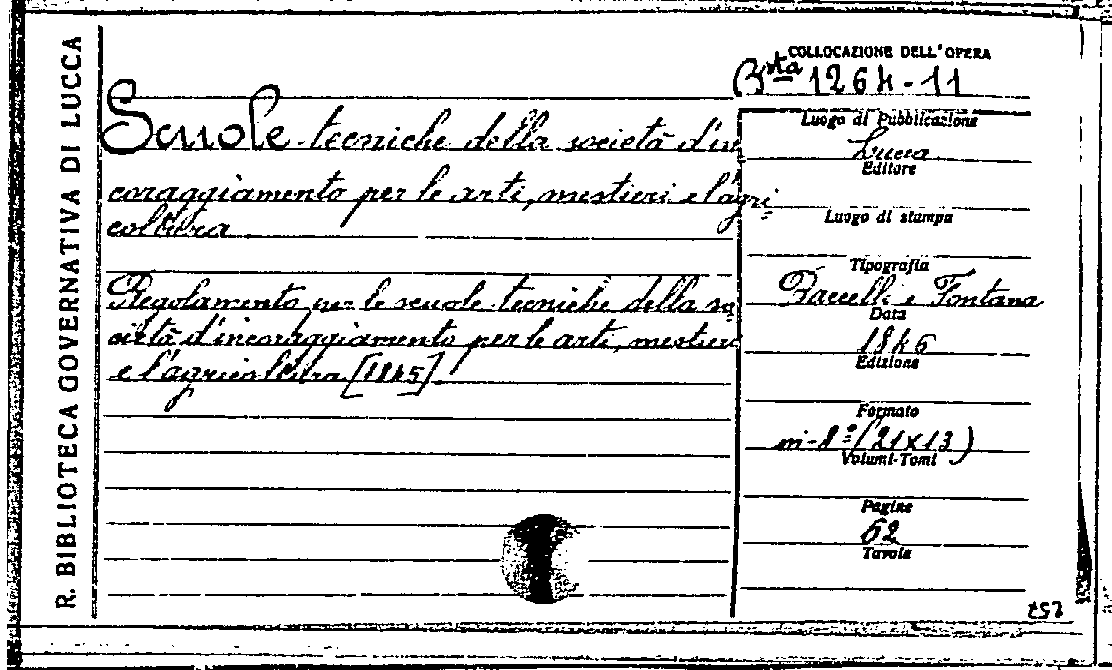 R. BIBLIOTECA GOVERNATIVA DI LUCCA
COLLOCAZIONE DELL'OPERA
Bsta 1264-11
Scuole tecniche della società d'in
coraggiamento per le arti, mestieri e l'agri-
coltura
Regolamento per le scuole tecniche della so
cietà d'incoraggiamento per le arti, mestieri
e l'agricoltura [1845]
Luogo di Pubblicazione
Lucca
Editore
Luogo di stampa
Tipografia
Baccelli e Fontana
Data
1846
Edizione
Formato
in-8° (21x13)
Volumi-Tomi
Pagine
62
Tavole